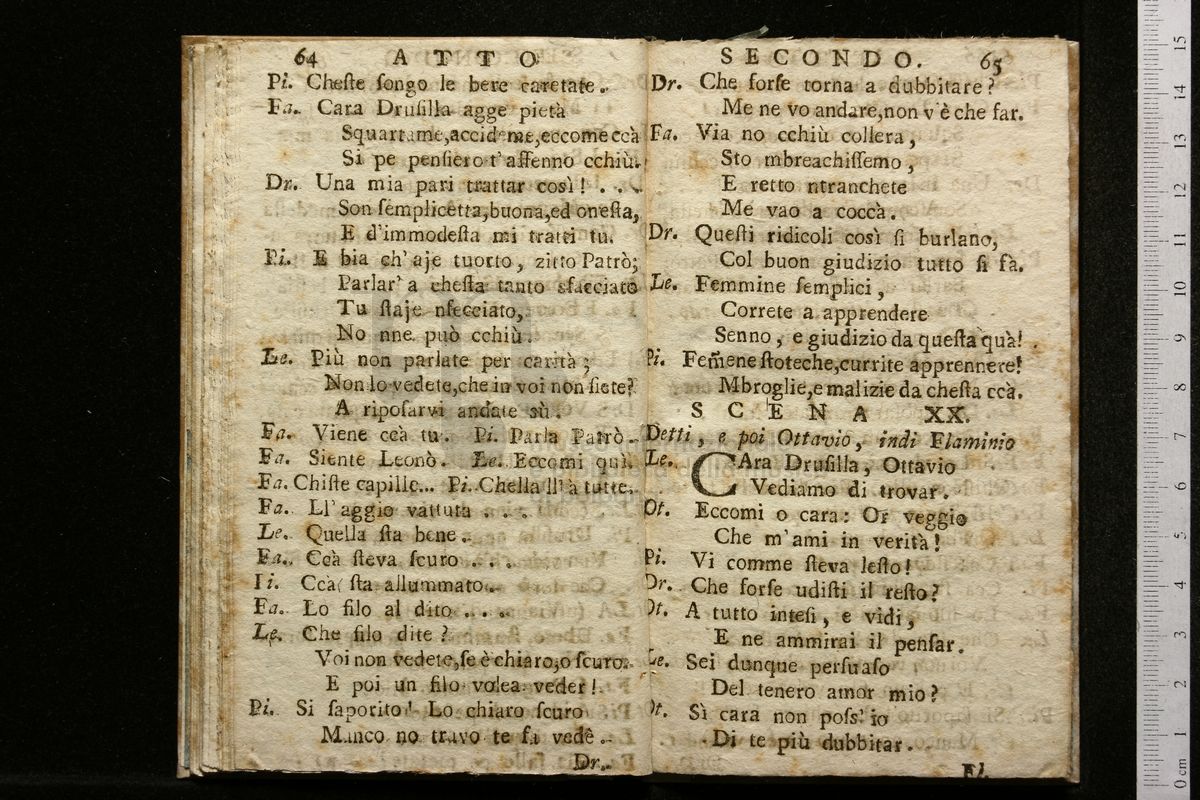 64 ATTO
Pi. Cheſte ſongo le bere caretate.
Fa. Cara Druſilla agge pietà
Squartame, accideme, eccome ccà
Si pe penſiero t'affenno cchiù.
Dr. Una mia pari trattar così! . . .
Son ſemplicetta, buona, ed oneſta,
E d'immodeſta mi tratti tu.
Pi. E bia ch'aje tuorto, zitto Patrò;
Parlar' a cheſta tanto sfacciato
Tu ſtaje nfecciato,
No nne può cchiù.
Le. Più non parlate per carità;
Non lo vedete, che in voi non ſiete?
A ripoſarvi andate sù.
Fa. Viene ccà tu. Pi. Parla Patrò.
Fa. Siente Leonò. Le. Eccomi quì.
Fa. Chiſte capille... Pi. Chella ll'à tutte.
Fa. Ll'aggio vattuta . . .
Le. Quella ſta bene.
Fa. Ccà ſteva ſcuro . . .
Pi. Ccà ſta allummato.
Fa. Lo filo al dito . . . .
Le. Che filo dite?
Voi non vedete, ſe è chiaro, o ſcuro.
E poi un filo volea veder!
Pi. Si ſaporito! Lo chiaro ſcuro
Manco no travo te fa vedè.
Dr.
SECONDO. 65
Dr. Che forſe torna a dubbitare?
Me ne vo andare, non v'è che far.
Fa. Via no cchiù collera,
Sto mbreachiſſemo,
E retto ntranchete
Me vao a coccà.
Dr. Queſti ridicoli così ſi burlano,
Col buon giudizio tutto ſi fà.
Le. Femmine ſemplici,
Correte a apprendere
Senno, e giudizio da queſta quà!
Pi. Fem̃ene ſtoteche, currite apprennere!
Mbroglie, e malizie da cheſta ccà.
SCENA XX.
Detti, e poi Ottavio, indi Flaminio
Le. CAra Druſilla, Ottavio
Vediamo di trovar.
Ot. Eccomi o cara: Or veggio
Che m'ami in verità!
Pi. Vi comme ſteva leſto!
Dr. Che forſe udiſti il reſto?
Ot. A tutto inteſi, e vidi,
E ne ammirai il penſar.
Le. Sei dunque perſuaſo
Del tenero amor mio?
Ot. Sì cara non poſs' io
Di te più dubbitar.
Fl.
0 cm 1 2 3 4 5 6 7 8 9 10 11 12 13 14 15